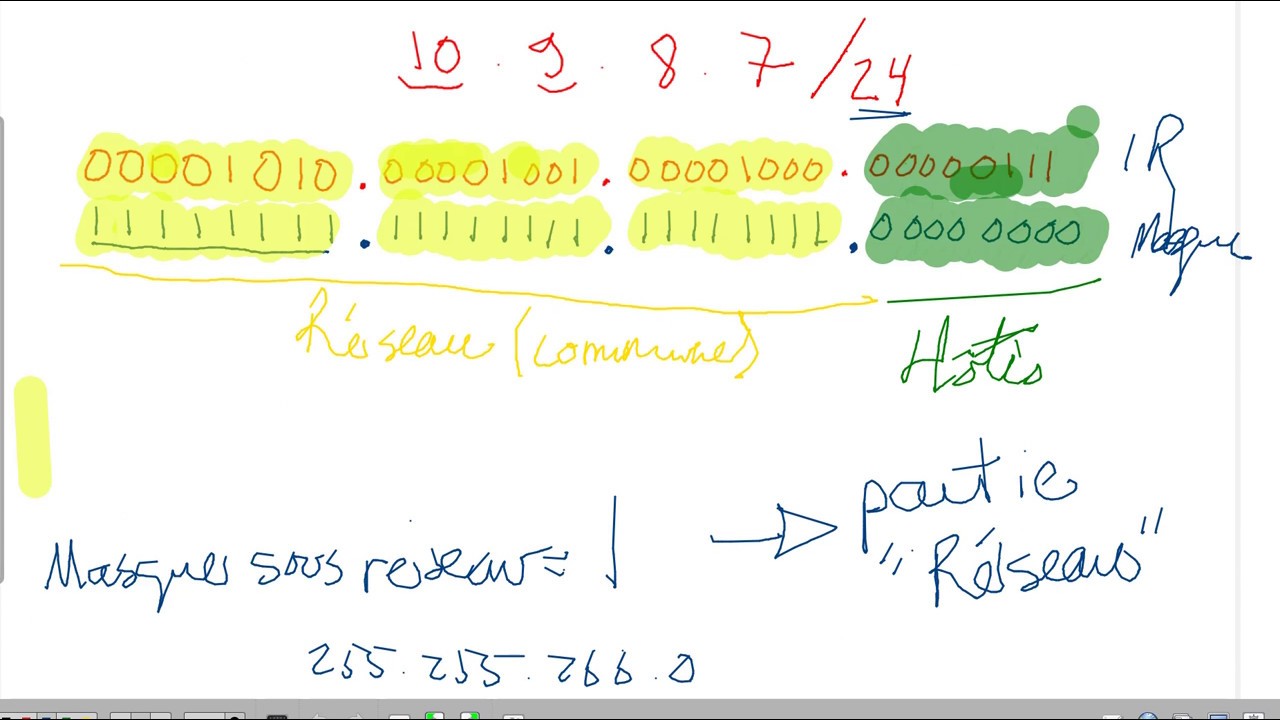 10 . 9 . 8 . 7 /24
00001010 . 00001001 . 00001000 . 00000111 IR
11111111 . 11111111 . 11111111 . 0000 0000 Masque
Réseau (commune) Hôtes
Masques sous reseau = 1 → partie
"Réseau"
255.255.266.0